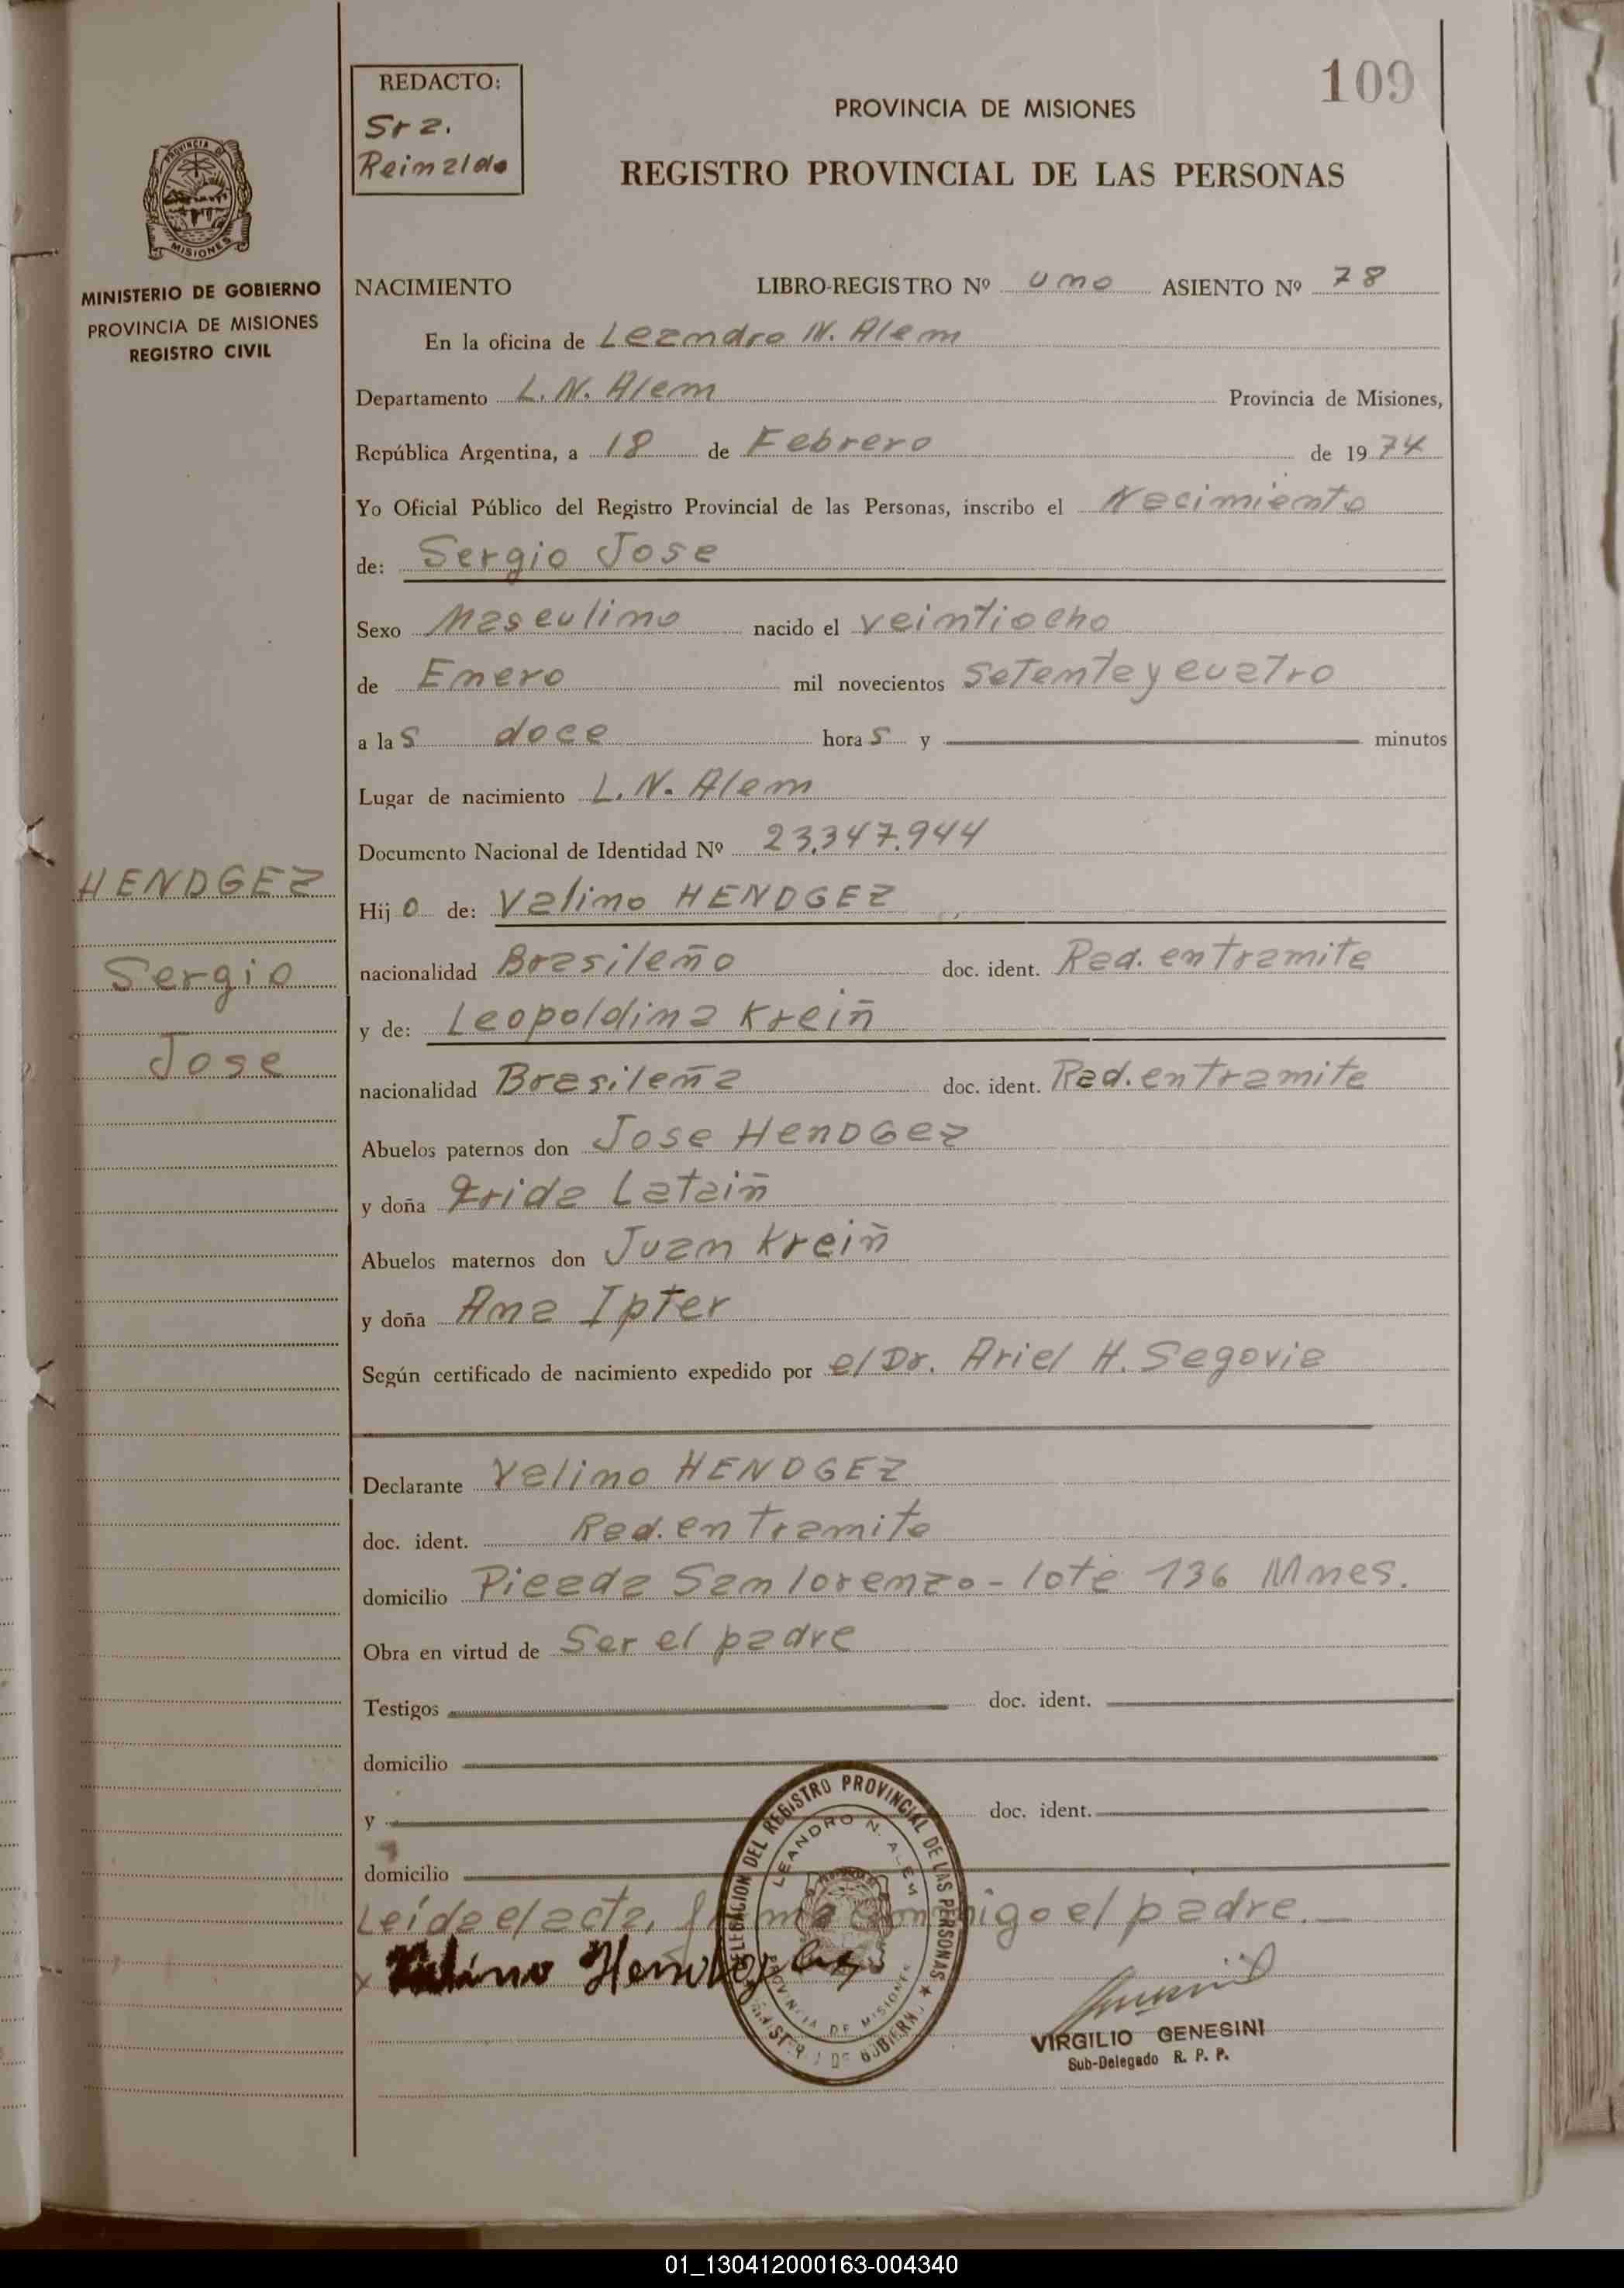 109
REDACTO:
Sra.
Reinaldo
PROVINCIA DE MISIONES
REGISTRO PROVINCIAL DE LAS PERSONAS
PROVINCIA DE
MISIONES
MINISTERIO DE GOBIERNO
PROVINCIA DE MISIONES
REGISTRO CIVIL
NACIMIENTO LIBRO-REGISTRO Nº uno ASIENTO Nº 78
En la oficina de Leandro N. Alem
Departamento L. N. Alem Provincia de Misiones,
República Argentina, a 18 de Febrero de 1974
Yo Oficial Público del Registro Provincial de las Personas, inscribo el Nacimiento
de: Sergio Jose
Sexo Masculino nacido el veintiocho
de Enero mil novecientos setenta y cuatro
a las doce horas y minutos
Lugar de nacimiento L. N. Alem
Documento Nacional de Identidad Nº 23.347.944
HENDGEZ
Sergio
Jose
Hijo de: Valino HENDGEZ
nacionalidad Brasileño doc. ident. Rad. en tramite
y de: Leopoldina Kreiñ
nacionalidad Brasileña doc. ident. Rad. en tramite
Abuelos paternos don Jose HenDGez
y doña Frida Lataiñ
Abuelos maternos don Juan Kreiñ
y doña Ana Ipter
Según certificado de nacimiento expedido por el Dr. Ariel H. Segovia
Declarante Valino HENDGEZ
doc. ident. Rad. en Tramite
domicilio Picada San lorenzo - lote 136 Mnes.
Obra en virtud de Ser el padre
Testigos doc. ident.
domicilio
y doc. ident.
domicilio
Leída el acta, firma conmigo el padre.—
DELEGACION DEL REGISTRO PROVINCIAL DE LAS PERSONAS ★ MINISTERIO DE GOBIERNO
LEANDRO N. ALEM
PROVINCIA DE MISIONES
VIRGILIO GENESINI
Sub-Delegado R. P. P.
01_130412000163-004340